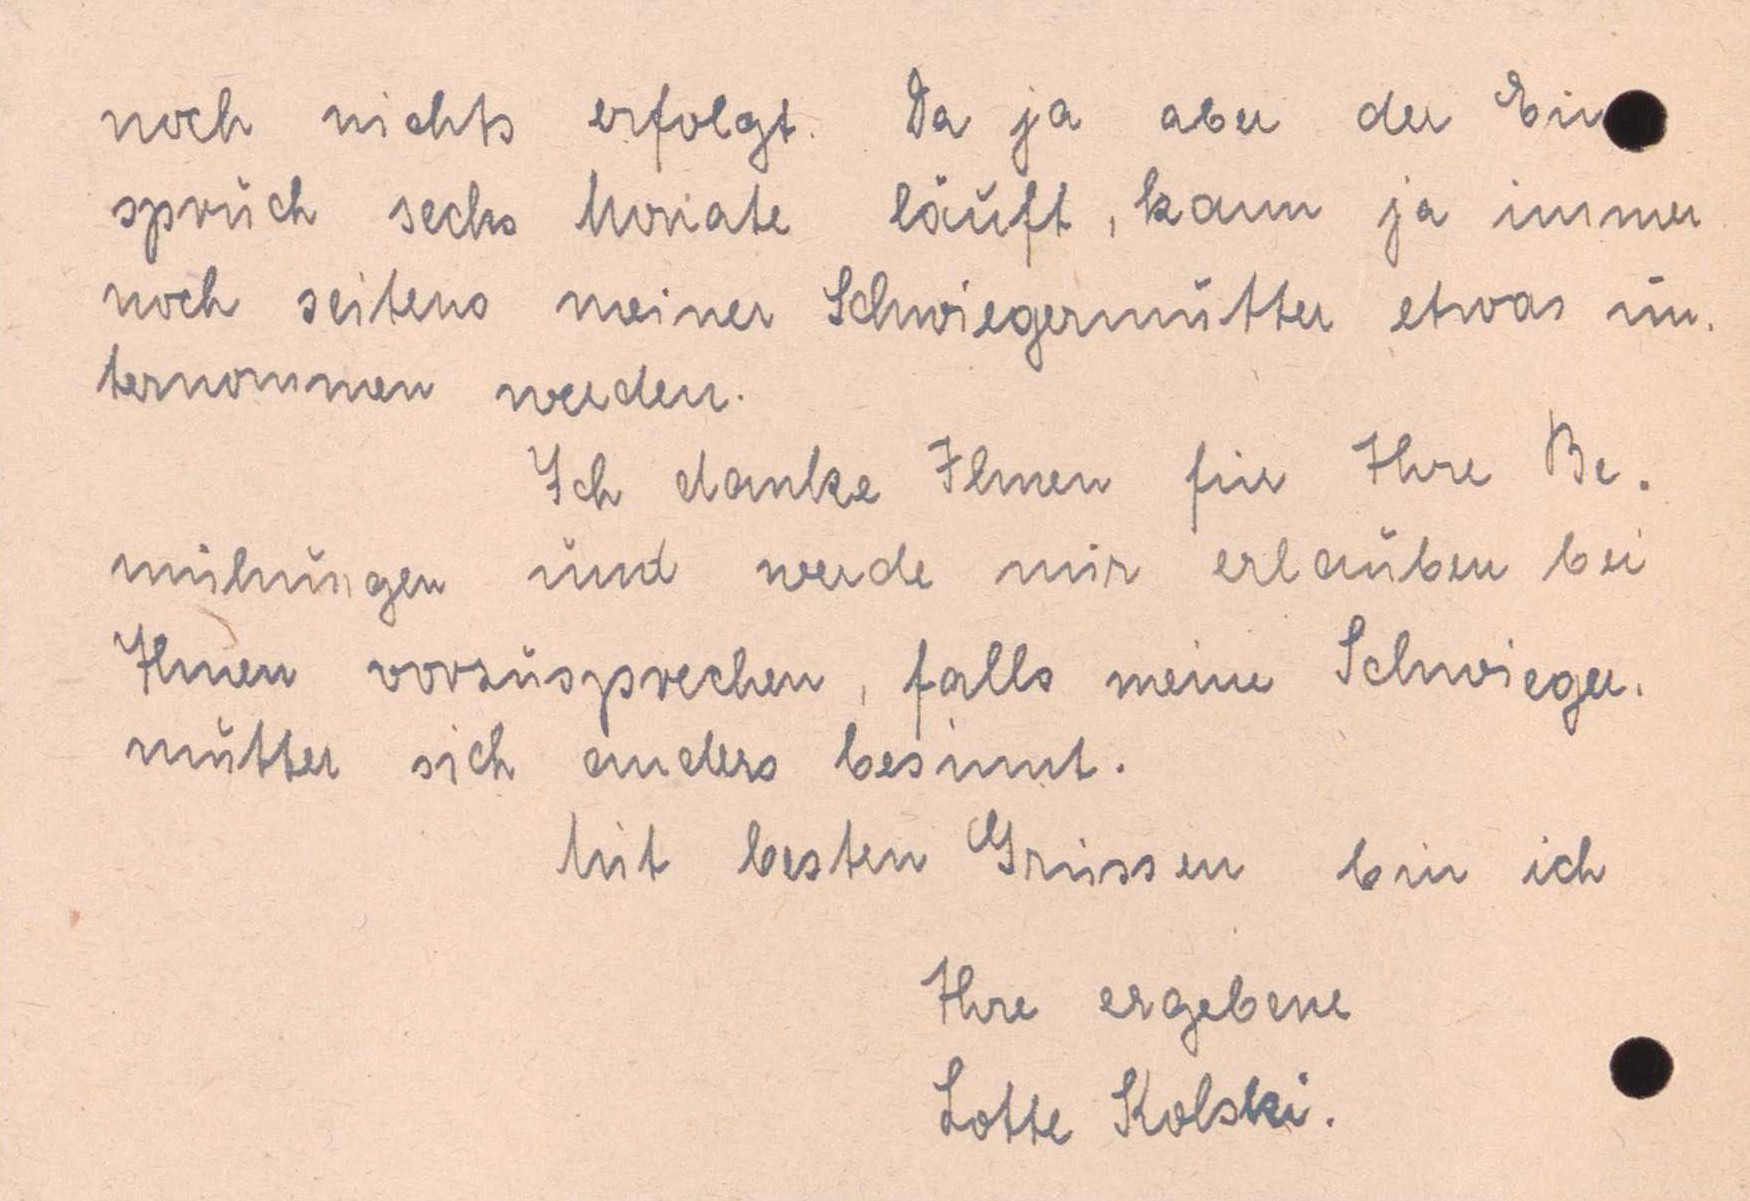 noch nichts erfolgt. Da ja aber der Ein
spruch sechs Monate läuft, kann ja immer
noch seitens meiner Schwiegermutter etwas un-
ternommen werden.
Ich danke Ihnen für Ihre Be-
mühungen und werde mir erlauben bei
Ihnen vorzusprechen, falls meine Schwieger-
mutter sich anders besinnt.
Mit besten Grüssen bin ich
Ihre ergebene
Lotte Kolski.